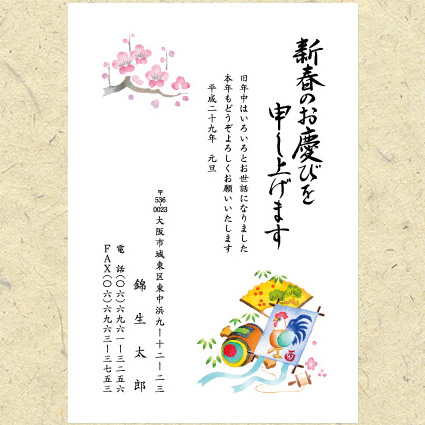 新春のお慶びを
申し上げます
旧年中はいろいろとお世話になりました
本年もどうぞよろしくお願いいたします
平成二十九年 元旦
〒536-0023 大阪市城東区東中浜九ー十二ー二三
錦生太郎
電話(〇六)六九六一ー三二五六
FAX(〇六)六九六三ー三七五三